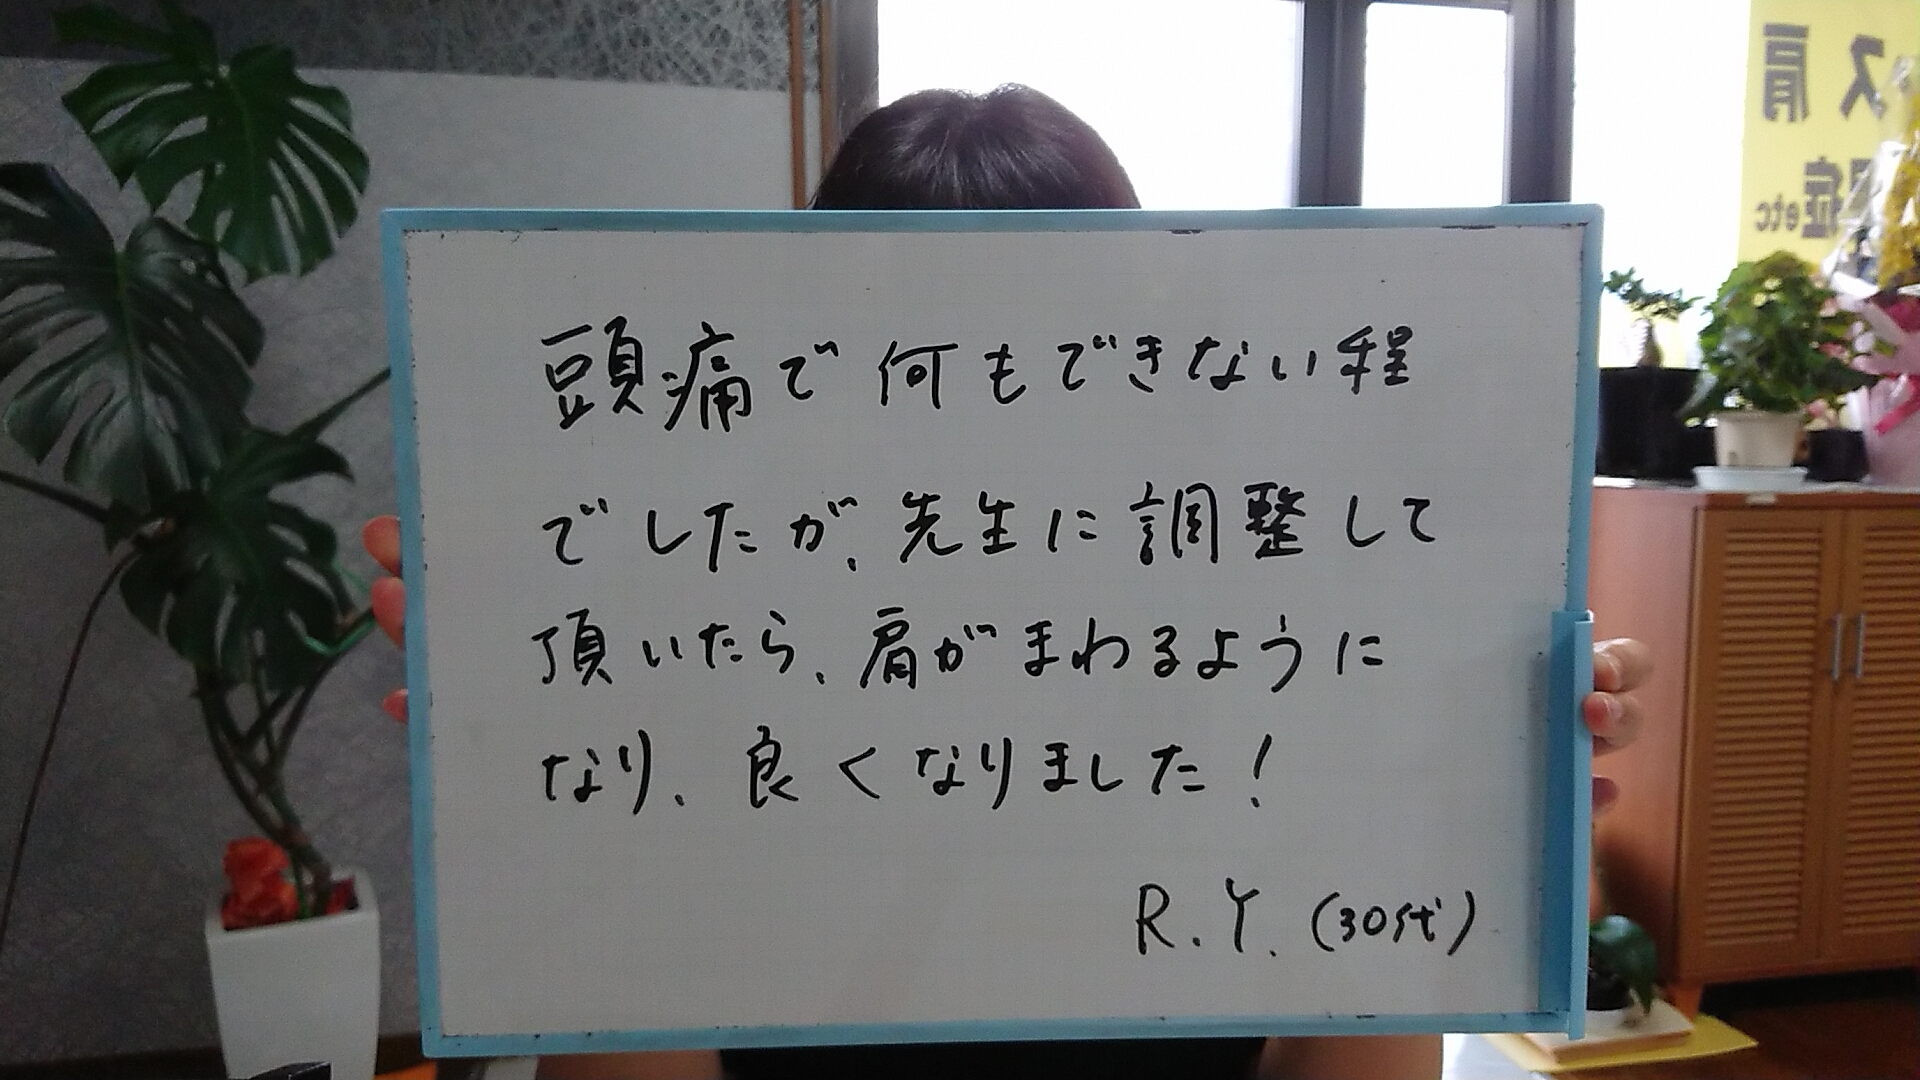 頭痛で何もできない程
でしたが、先生に調整して
頂いたら、肩がまわるように
なり、良くなりました！
R.Y.（30代）
ス肩
症etc